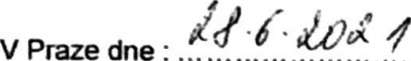 V Praze dne : 28.6.2021